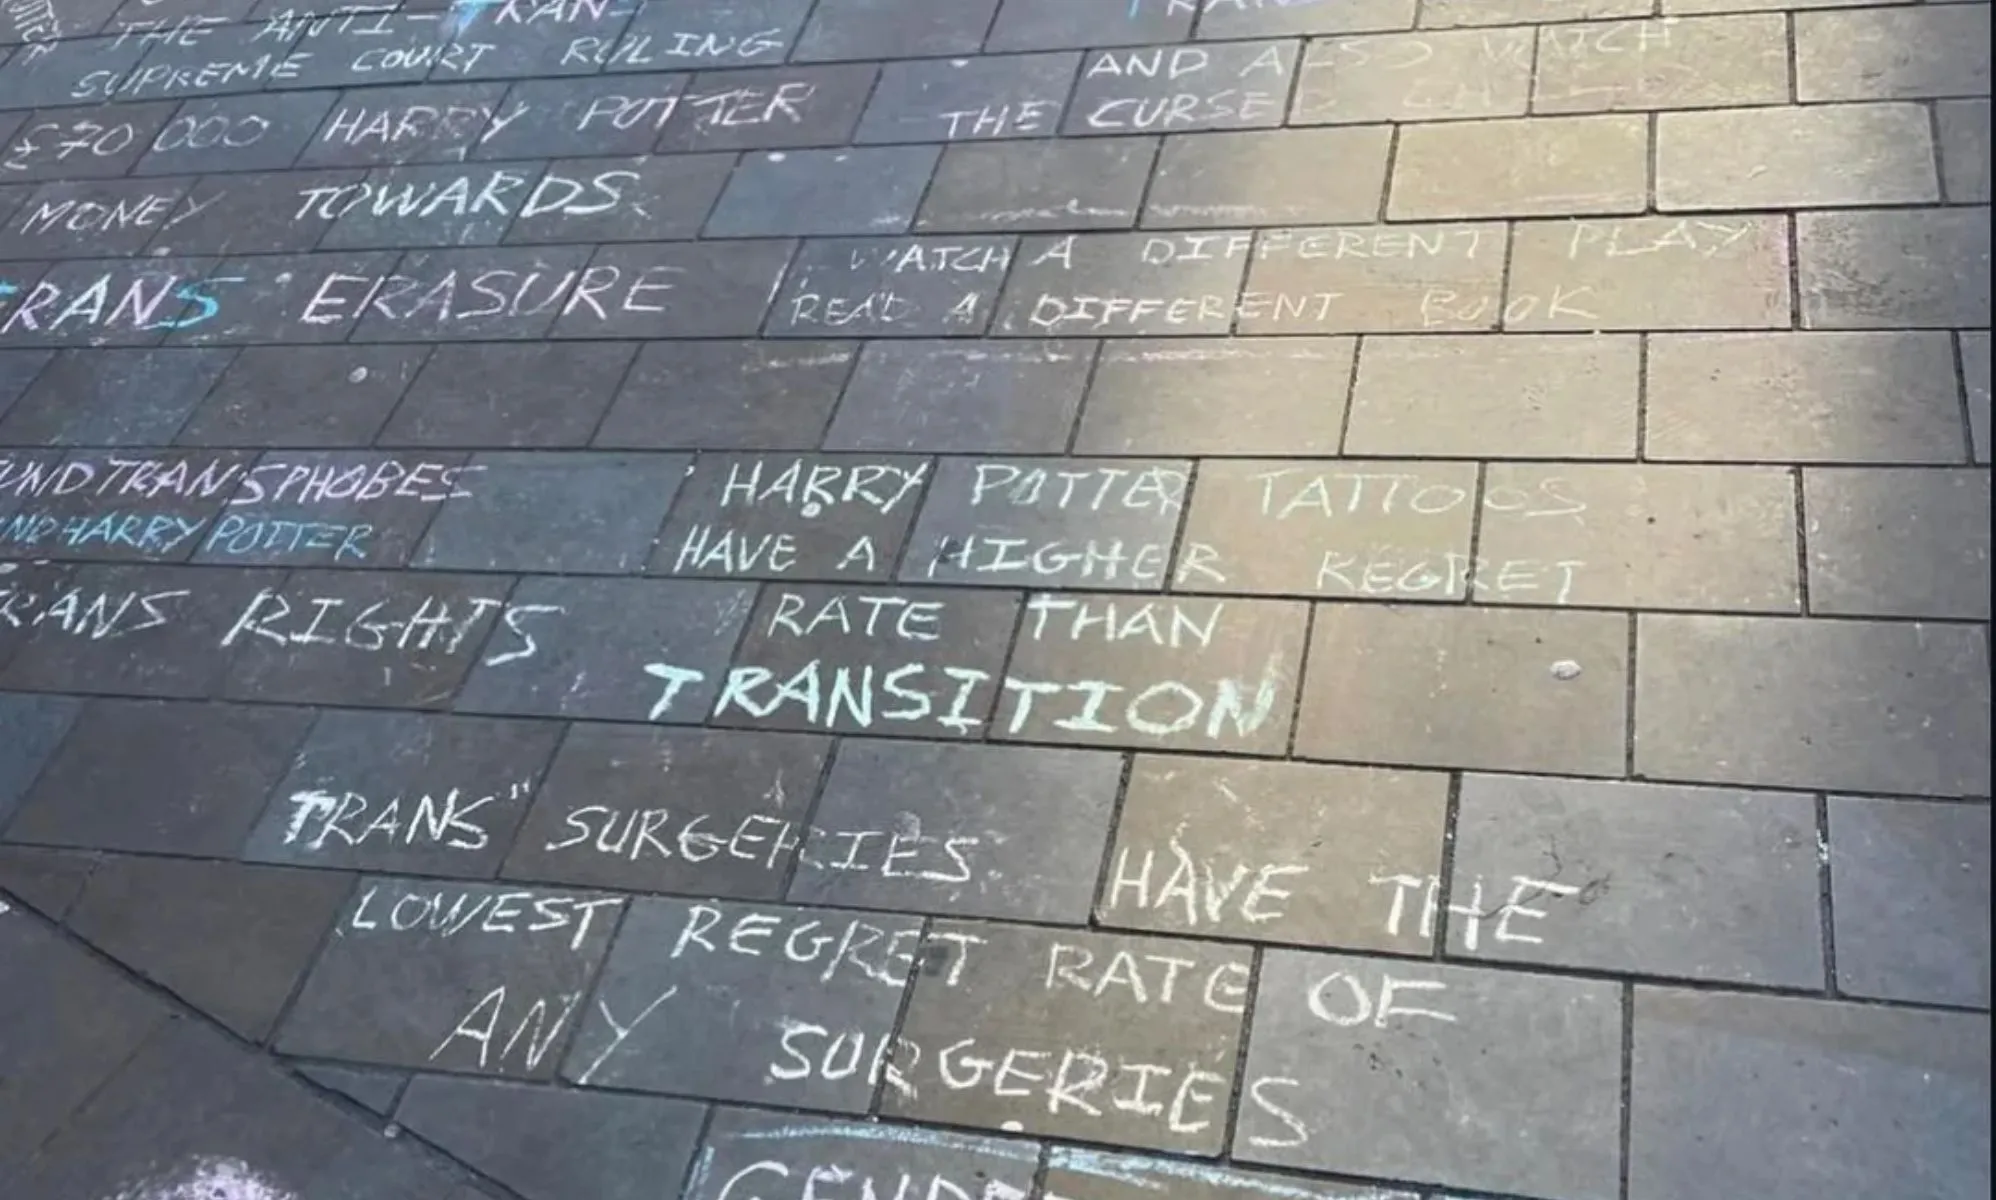 THE ANTI-TRAN-
SUPREME COURT RULING
£70 000 HARRY POTTER
MONEY TOWARDS
TRANS ERASURE
TRANS
AND ALSO WATCH
THE CURSED
WATCH A DIFFERENT PLAY
READ A DIFFERENT BOOK
UND TRANSPHOBES
ND HARRY POTTER
RANS RIGHTS
HARRY POTTER TATTOOS
HAVE A HIGHER REGRET
RATE THAN
TRANSITION
"TRANS" SURGERIES HAVE THE
LOWEST REGRET RATE OF
ANY SURGERIES
GENDE